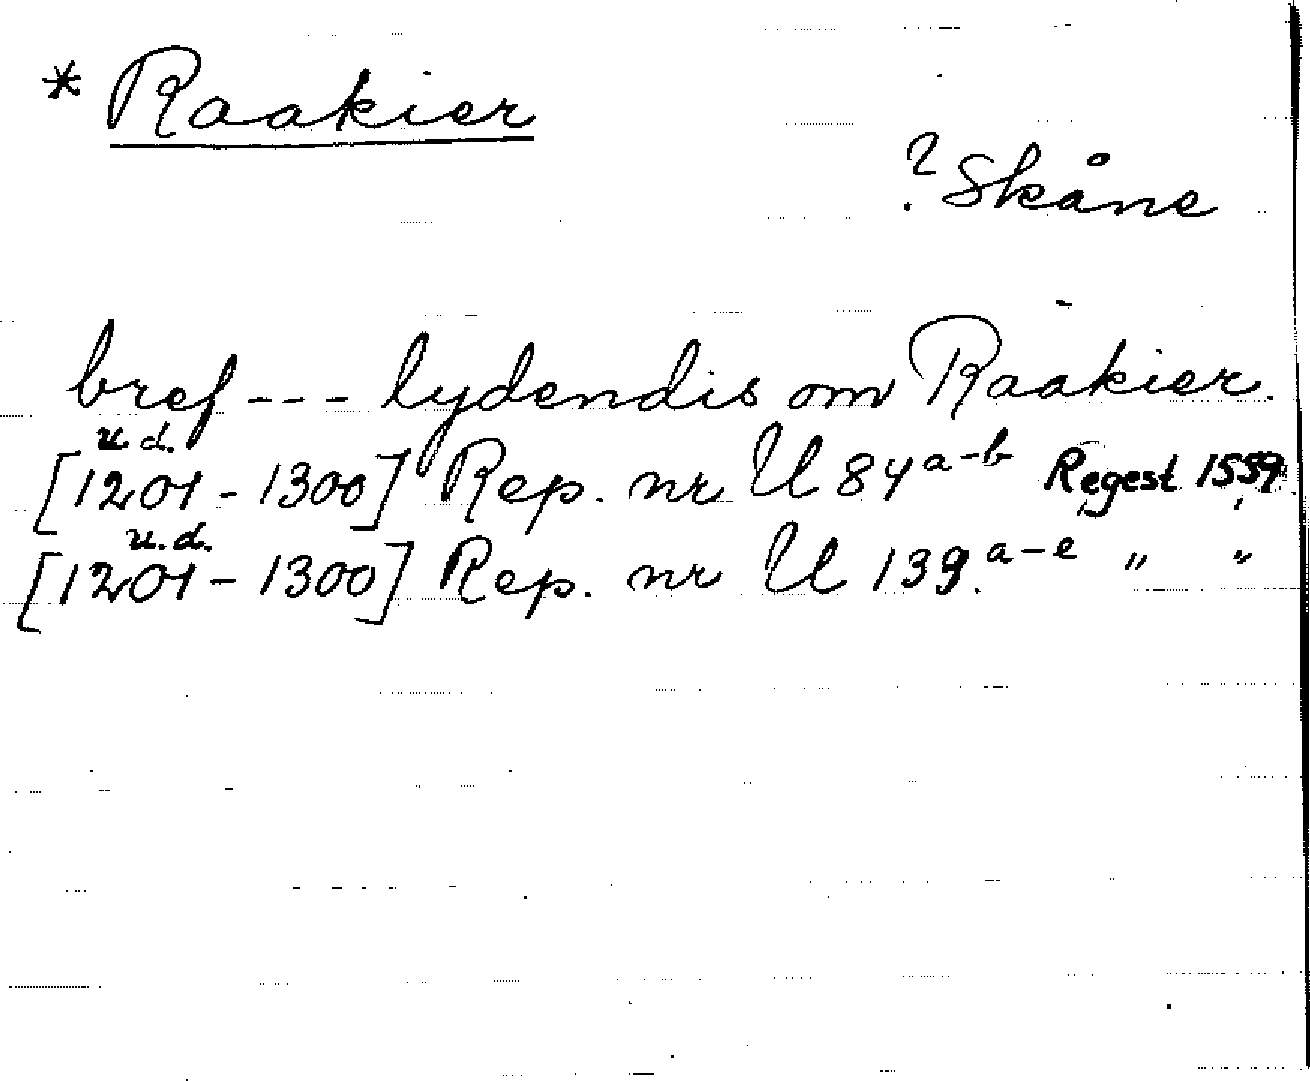 * Raakier
? Skåne
bref --- lydendis om Raakier.
u.d.
[1201-1300] Rep. nr U 84 a-b Regest 1559
u.d.
[1201-1300] Rep. nr U 139. a-e " "